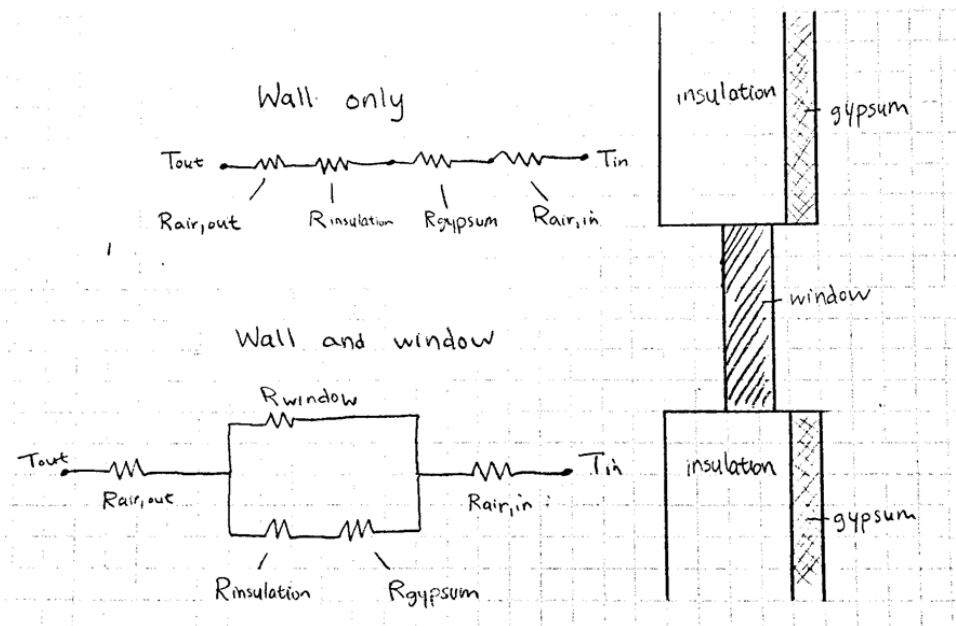 Wall only
Tout
Tin
Rair,out
Rinsulation
Rgypsum
Rair,in
Wall and window
Rwindow
Tout
Tin
Rair,out
Rair,in
Rinsulation
Rgypsum
insulation
gypsum
window
insulation
gypsum